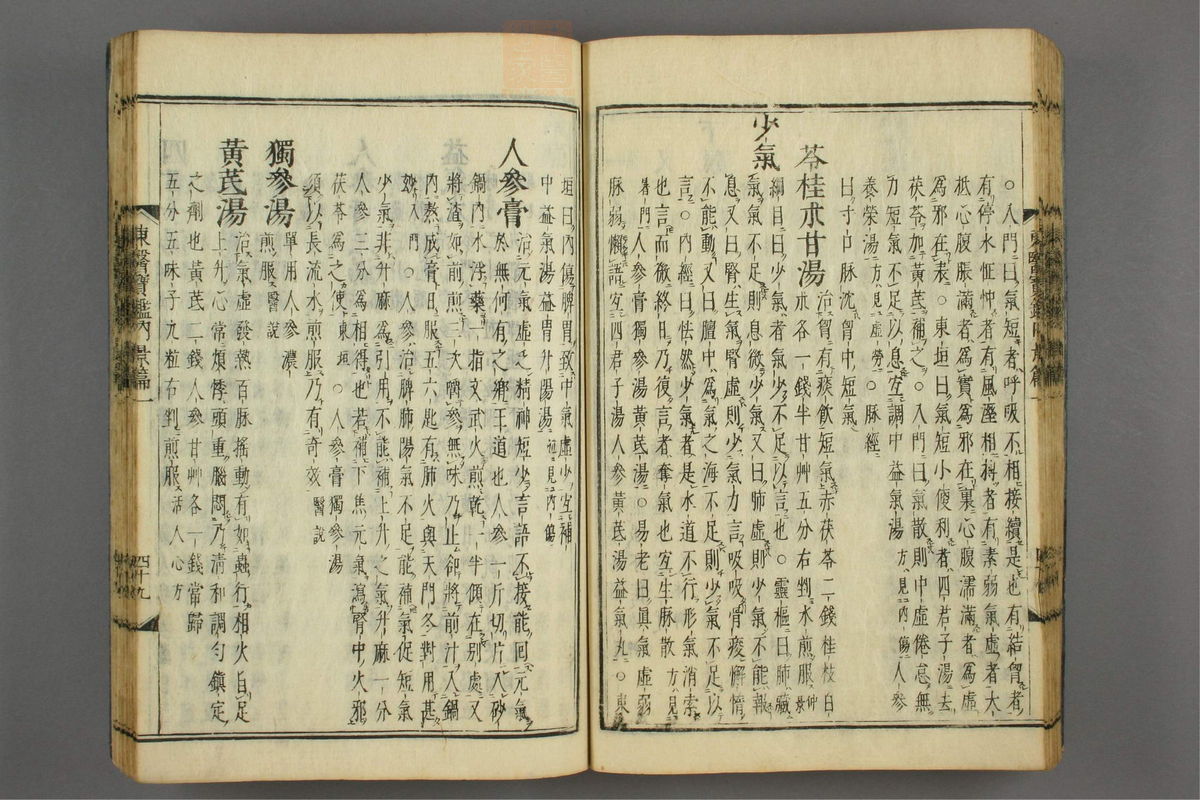 ○入門曰氣短者呼吸不相接續是也有結胷者
有停水怔忡者有風溼相搏者有素弱氣虛者大
柢心腹脹滿者爲實爲邪在裏心腹濡滿者爲虛
爲邪在表○東垣曰氣短小便利者四君子湯去
茯苓加黃芪補之○入門曰氣散則中虛倦怠無
力短氣不足以息宜調中益氣湯方見內傷人參
養榮湯方見虛勞○脉經
曰寸口脉沈胷中短氣
苓桂朮甘湯治胷有痰飮短氣赤茯苓二錢桂枝白
朮各一錢半甘艸五分右剉水煎服仲景
少氣
綱目曰少氣者氣少不足以言也○靈樞曰肺藏
氣氣不足則息微少氣又曰肺虛則少氣不能報
息又曰腎生氣腎虛則少氣力言吸吸骨痠懈惰
不能動又曰膻中爲氣之海不足則少氣不足以
言○內經曰怯然少氣者是水道不行形氣消索
也言而微終日乃復言者奪氣也宜生脉散方見
暑門人參膏獨參湯黃芪湯○易老曰眞氣虛弱
脉弱懶語宜四君子湯人參黃芪湯益氣丸○東
垣曰內傷脾胃致中氣虛少宜補
中益氣湯益胃升陽湯並見內傷
人參膏治元氣虛乏精神短少言語不接能回元氣
於無何有之鄕王道也人參一斤切片入砂
鍋內水浮藥一指文武火煎乾一半傾在別處又
將渣如前煎三次嚼參無味乃止卻將前汁入鍋
內熬成膏日服五六匙有肺火與天門冬對用甚
妙入門○人參治脾肺陽氣不足能補氣促短氣
少氣非升麻爲引用不能補上升之氣升麻一分
人參三分爲相得也若補下焦元氣瀉腎中火邪
茯苓爲之使東垣○人參膏獨參湯
須以長流水煎服乃有奇效醫說
獨參湯單用人參濃
煎服醫說
黃芪湯治氣虛發熱百脉搖動有如蟲行相火自足
上升心常煩悸頭重腦悶乃淸和調勻鎭定
之劑也黃芪二錢人參甘艸各一錢當歸
五分五味子九粒右剉煎服活人心方
東醫寶鑑內景篇一
四十九